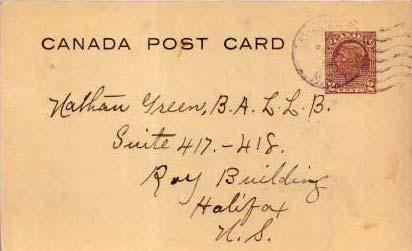 CANADA POST CARD
Nathan Green, B.A. L L. B.
Suite 417.-418.
Roy Building
Halifax
N.S.
2 CENTS 2